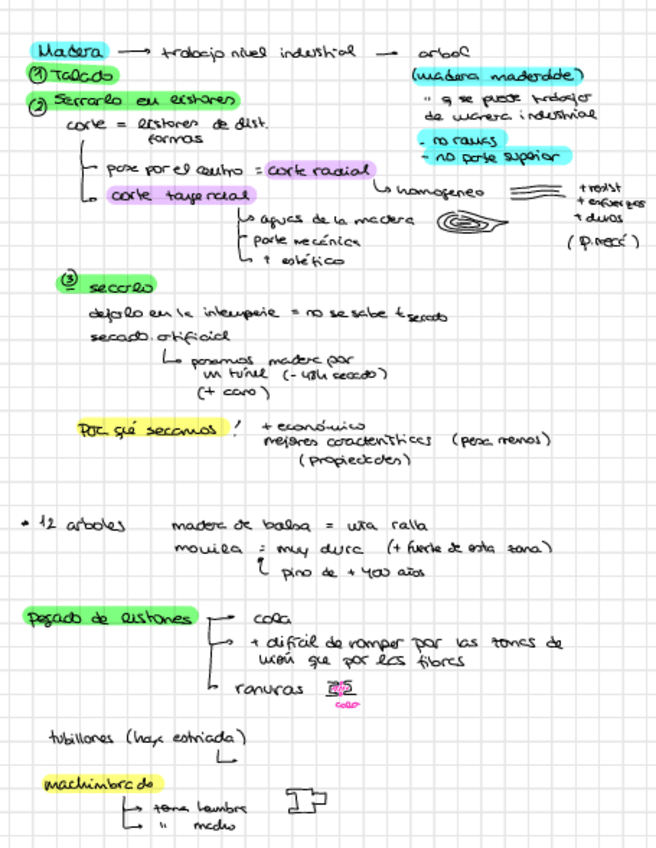 Madera → trabajo nivel industrial — arbol
① Talado
(madera maderable)
② Serrarlo en listones
" q se puede trabajar
de manera industrial
corte = listones de dist.
formas
- no ramas
- no parte superior
pasa por el centro = corte radial
homogeneo
+ resist
+ esfuerzos
+ duros
(p. mecá)
corte tangencial
aguas de la madera
parte mecánica
↑ estético
③ secarlo
dejarlo en la intemperie = no se sabe t secado
secado artificial
pasamos madera por
un túnel (- 48h secado)
(+ caro)
Por qué secamos ! + económico
mejores características (pesa menos)
(propiedades)
• 12 arboles madera de balsa = uña ralla
: muy dura (+ fuerte de esta zona)
pino de + 400 años
pegado de listones
cola
+ dificil de romper por las zonas de
unión que por las fibras
ranuras
cola
tubillones (haya estriada)
machimbrado
hembra
" macho